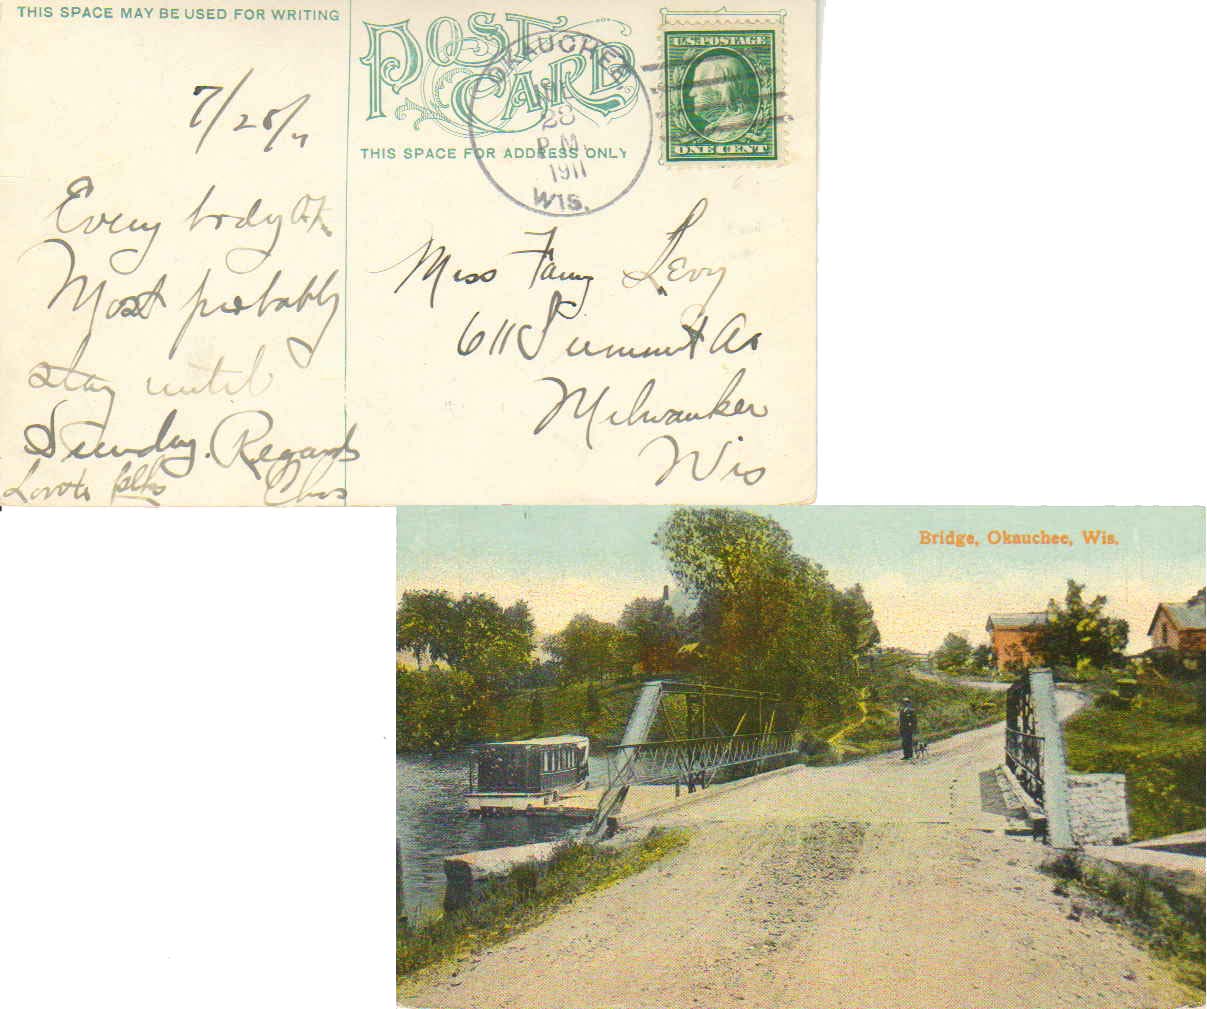 THIS SPACE MAY BE USED FOR WRITING
POST CARD
THIS SPACE FOR ADDRESS ONLY
OKAUCHEE
JUL
28
P.M.
1911
WIS.
U.S. POSTAGE
ONE CENT
7/28/11
Every body O.K.
Most probably
stay until
Sunday. Regards
Love to folks Chas
Miss Fanny Levy
611 Summit Av
Milwaukee
Wis
Bridge, Okauchee, Wis.